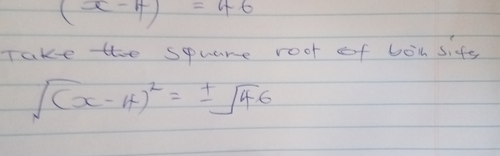 (x-4) = 46
Take the square root of both sides
√(x-4)² = ± √46